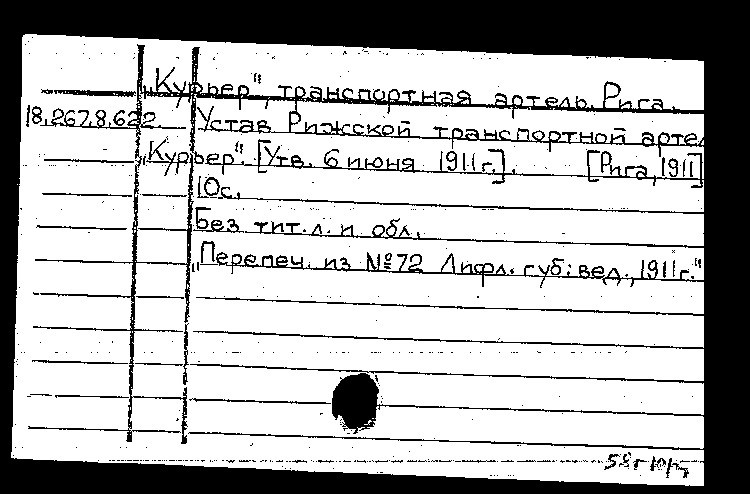 „Курьер", транспортная артель. Рига.
18.267.8.622. Устав Рижской транспортной артел
„Курьер". [Утв. 6 июня 1911 г.]. [Рига, 1911]
10с.
Без тит. л. и обл.
„Перепеч. из №72 Лифл. губ. вед., 1911 г."